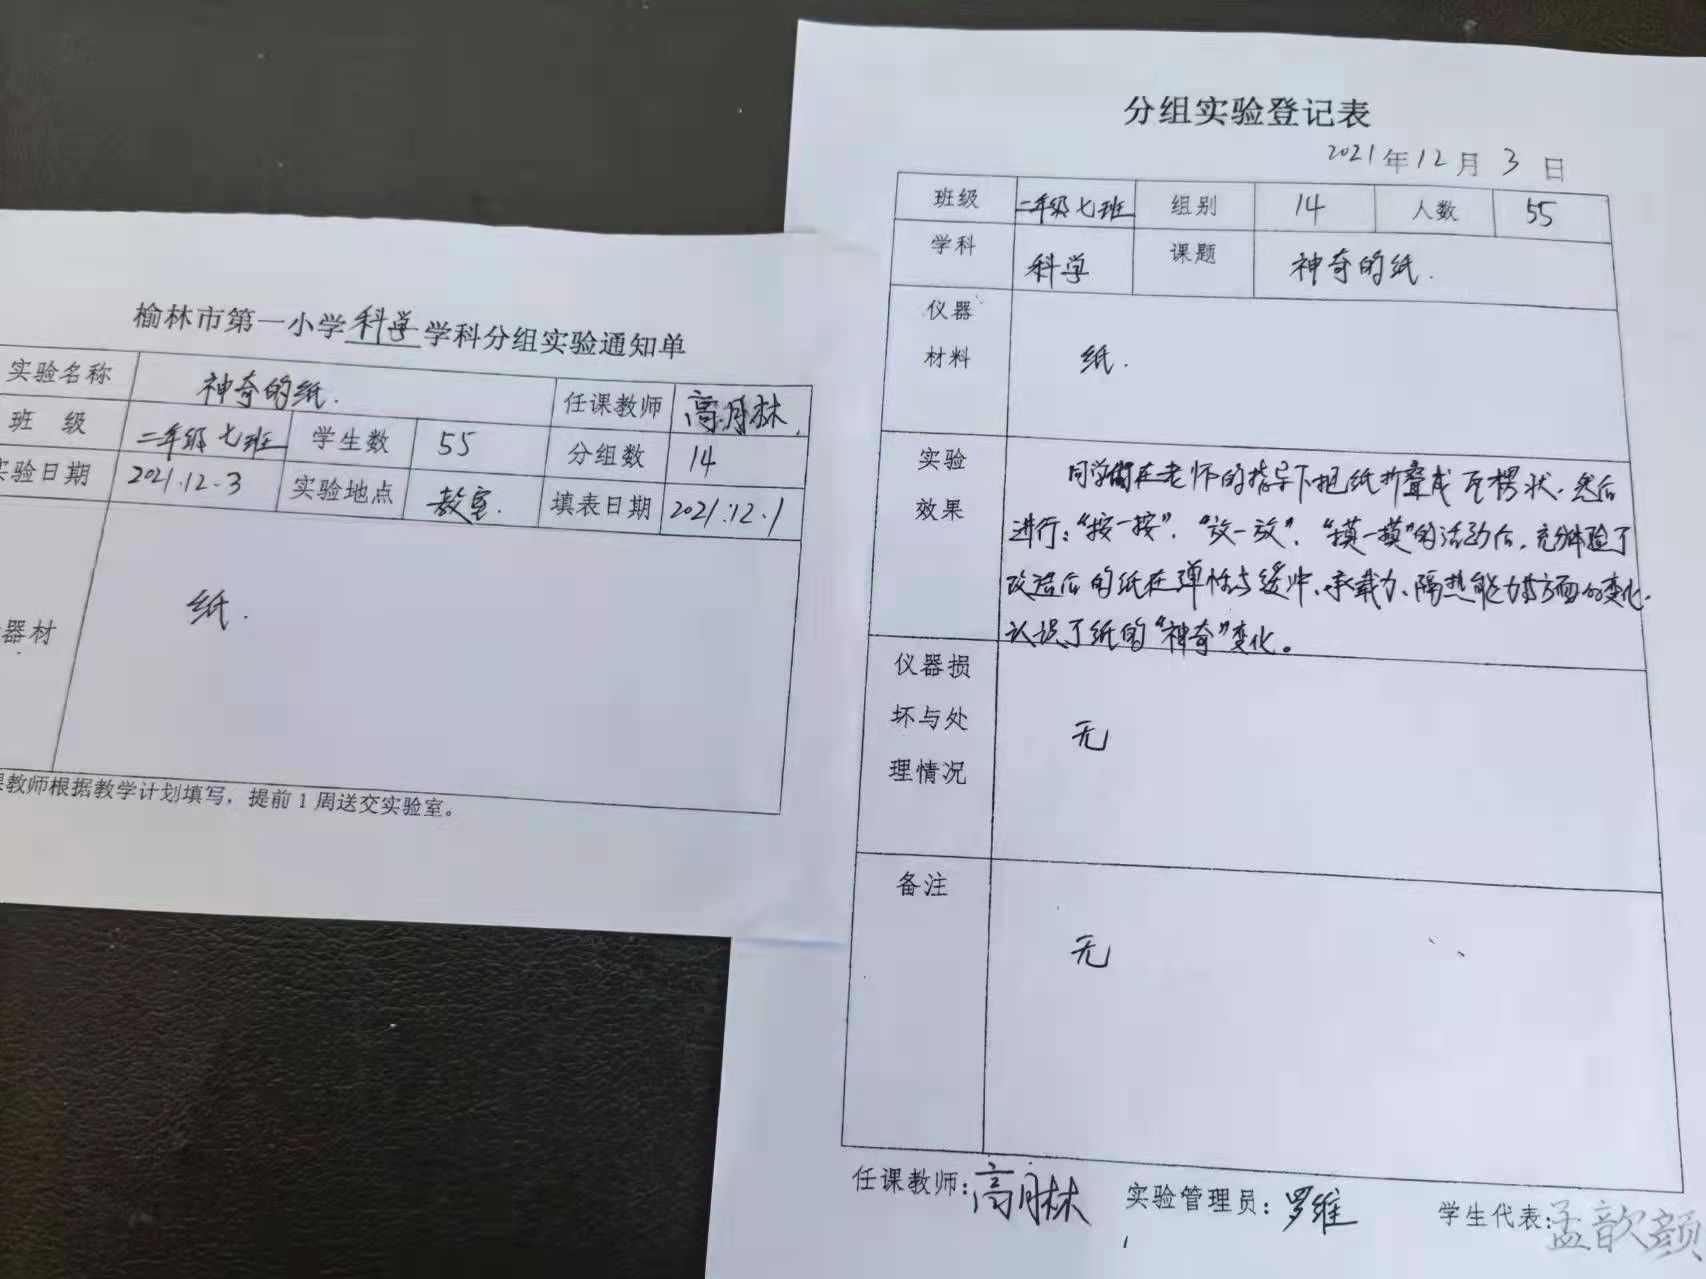 榆林市第一小学科学学科分组实验通知单
实验名称 神奇的纸. 任课教师 高月林
班 级 二年级七班 学生数 55 分组数 14
实验日期 2021.12.3 实验地点 教室. 填表日期 2021.12.1
器材 纸.
课教师根据教学计划填写，提前1周送交实验室。
分组实验登记表
2021年12月3日
班级 二年级七班 组别 14 人数 55
学科 科学 课题 神奇的纸.
仪器
材料 纸.
实验
效果
同学们在老师的指导下把纸折叠成瓦楞状.然后
进行:“按一按”.“放一放”.“摸一摸”的活动后.充分体验了
改造后的纸在弹性与缓冲、承载力、隔热能力等方面的变化.
认识了纸的“神奇”变化。
仪器损
坏与处
理情况
无
备注
无
任课教师:高月林 实验管理员:罗维 学生代表:孟歆颜